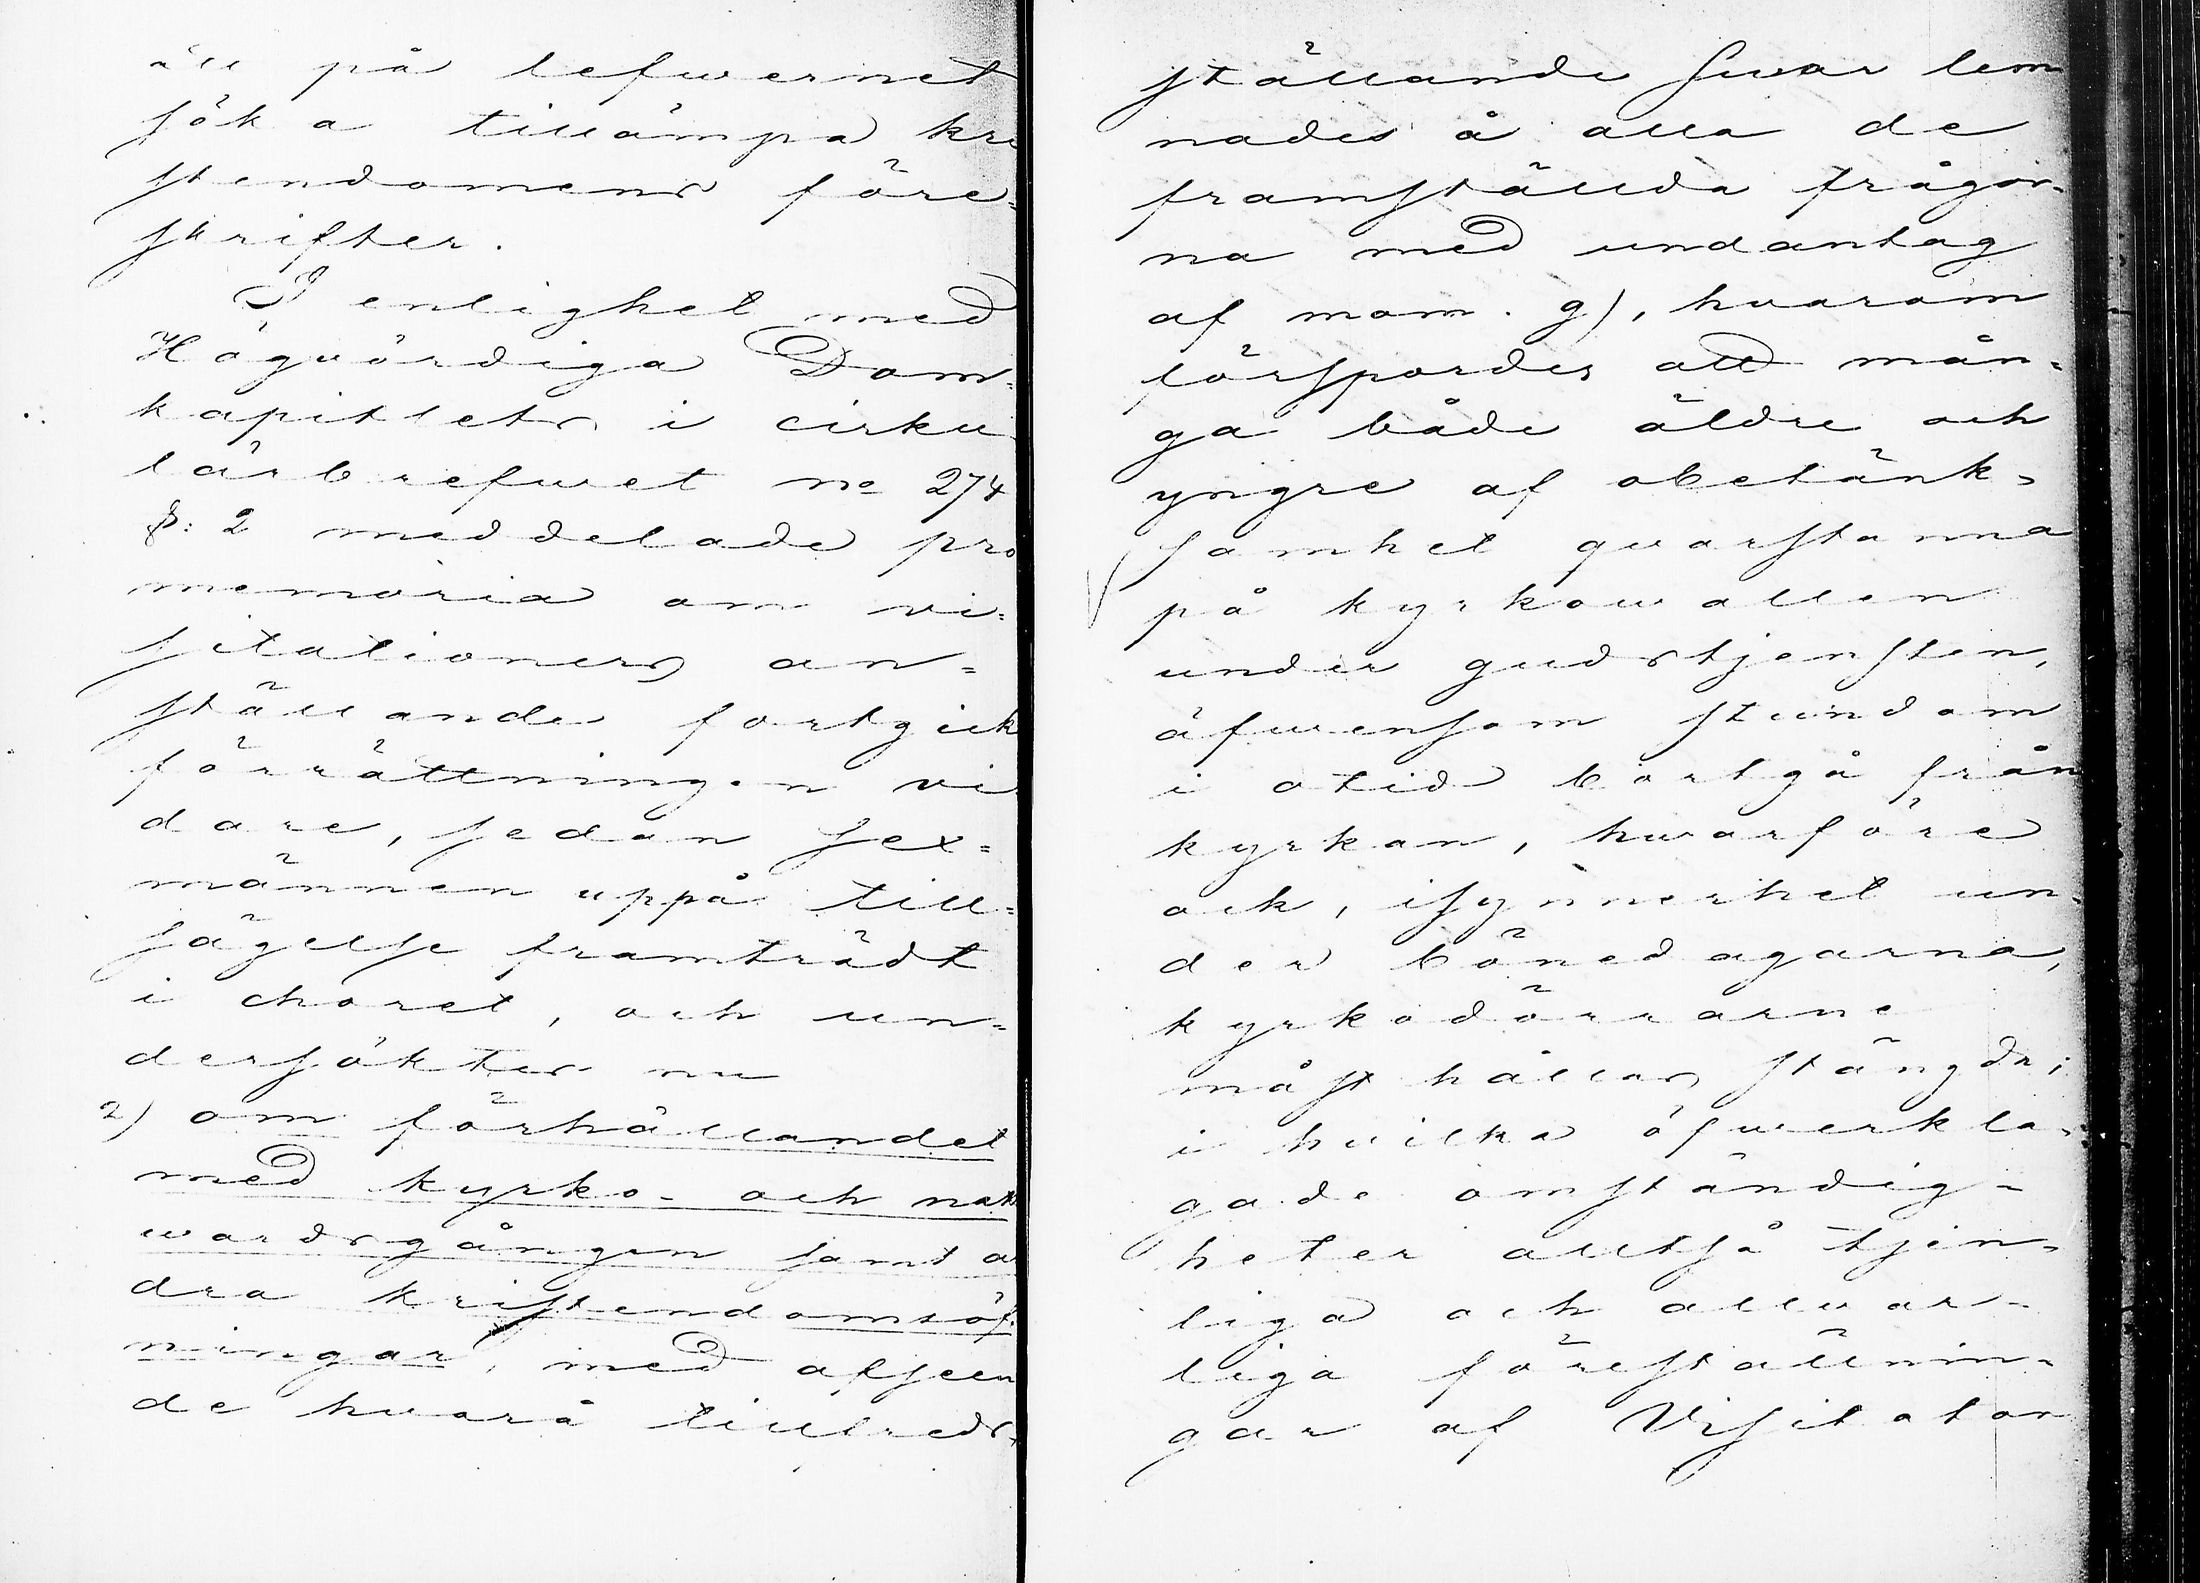 äu på lefwernet
söka tillämpa kri
stendomens före=
skrifter.
I enlighet med
Högvördiga Dom=
kapitlets i cirku
lärbrefwet no 274
§: 2 meddelade pro
memoria om vi=
sitationers an=
ställande fortgick
förrättningen vi
dare, sedan Sex=
männen uppå till=
sägelse framträdt
i choret, och un=
dersöktes nu
2) om förhållandet
med kyrko- och natt
wardsgången samt a
dra kristendomsöf
ningar, med afseen
de hvarå tillfreds=
ställande svar lem
nades å alla de
framställda frågor=
na med undantag
af mom. g), hvarom
förspordes att mån=
ga både äldre och
yngre af obetänk=
samhet qvarstanna
på kyrkowallen
under gudstjensten,
äfwensom stundom
i otid bortgå från
kyrkan, hwarföre
ock, isynnerhet un=
der bönedagarna,
kyrkodörrarne
måst hållas stängda;
i hvilka öfwerkla=
gade omständig=
heter alltså tjen=
liga och allwar=
liga föreställnin=
gar af Visitator